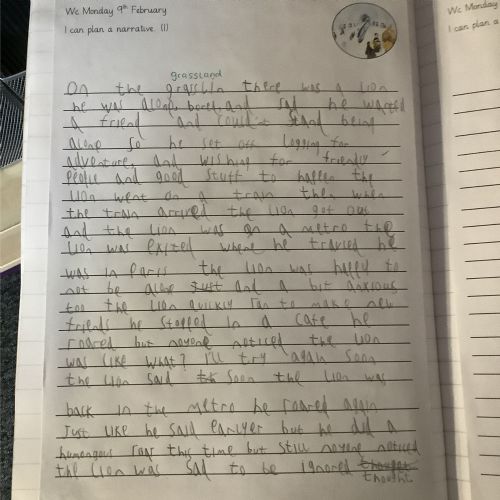 Wc Monday 9th February
I can plan a narrative. (I)
Wc Monday
I can plan a
grassland
On the grassln there was a lion
he was alone, bored, and sad he wanted
a friend and could't stand being
alone so he set off logging for
adventure, and wishing for friendly
people and good stuff to happen the
lion went on a train then when
the train arrived the lion got out
and the lion was on a metro the
lion was exited where he travled he
was in Paris the lion was happy to
not be alone just and a bit anxious
too the lion quickly ran to make new
friends he stopped in a cafe he
roared but noyone noticed the lion
was like what? I'll try again soon
the lion said th soon the lion was
back in the metro he roared again
Just like he said earlyer but he did a
humongous roar this time but still noyone noticed
the lion was sad to be ignored thought
thought